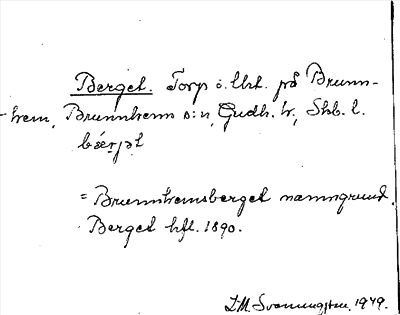 Berget. Torp o. lht. på Brunn-
hem, Brunnhem s:n, Gudh. hr, Skb. l.
bærjət
= Brunnhemsberget namngrund.
Berget hfl. 1890.
D.M. Svenungsson. 1949.